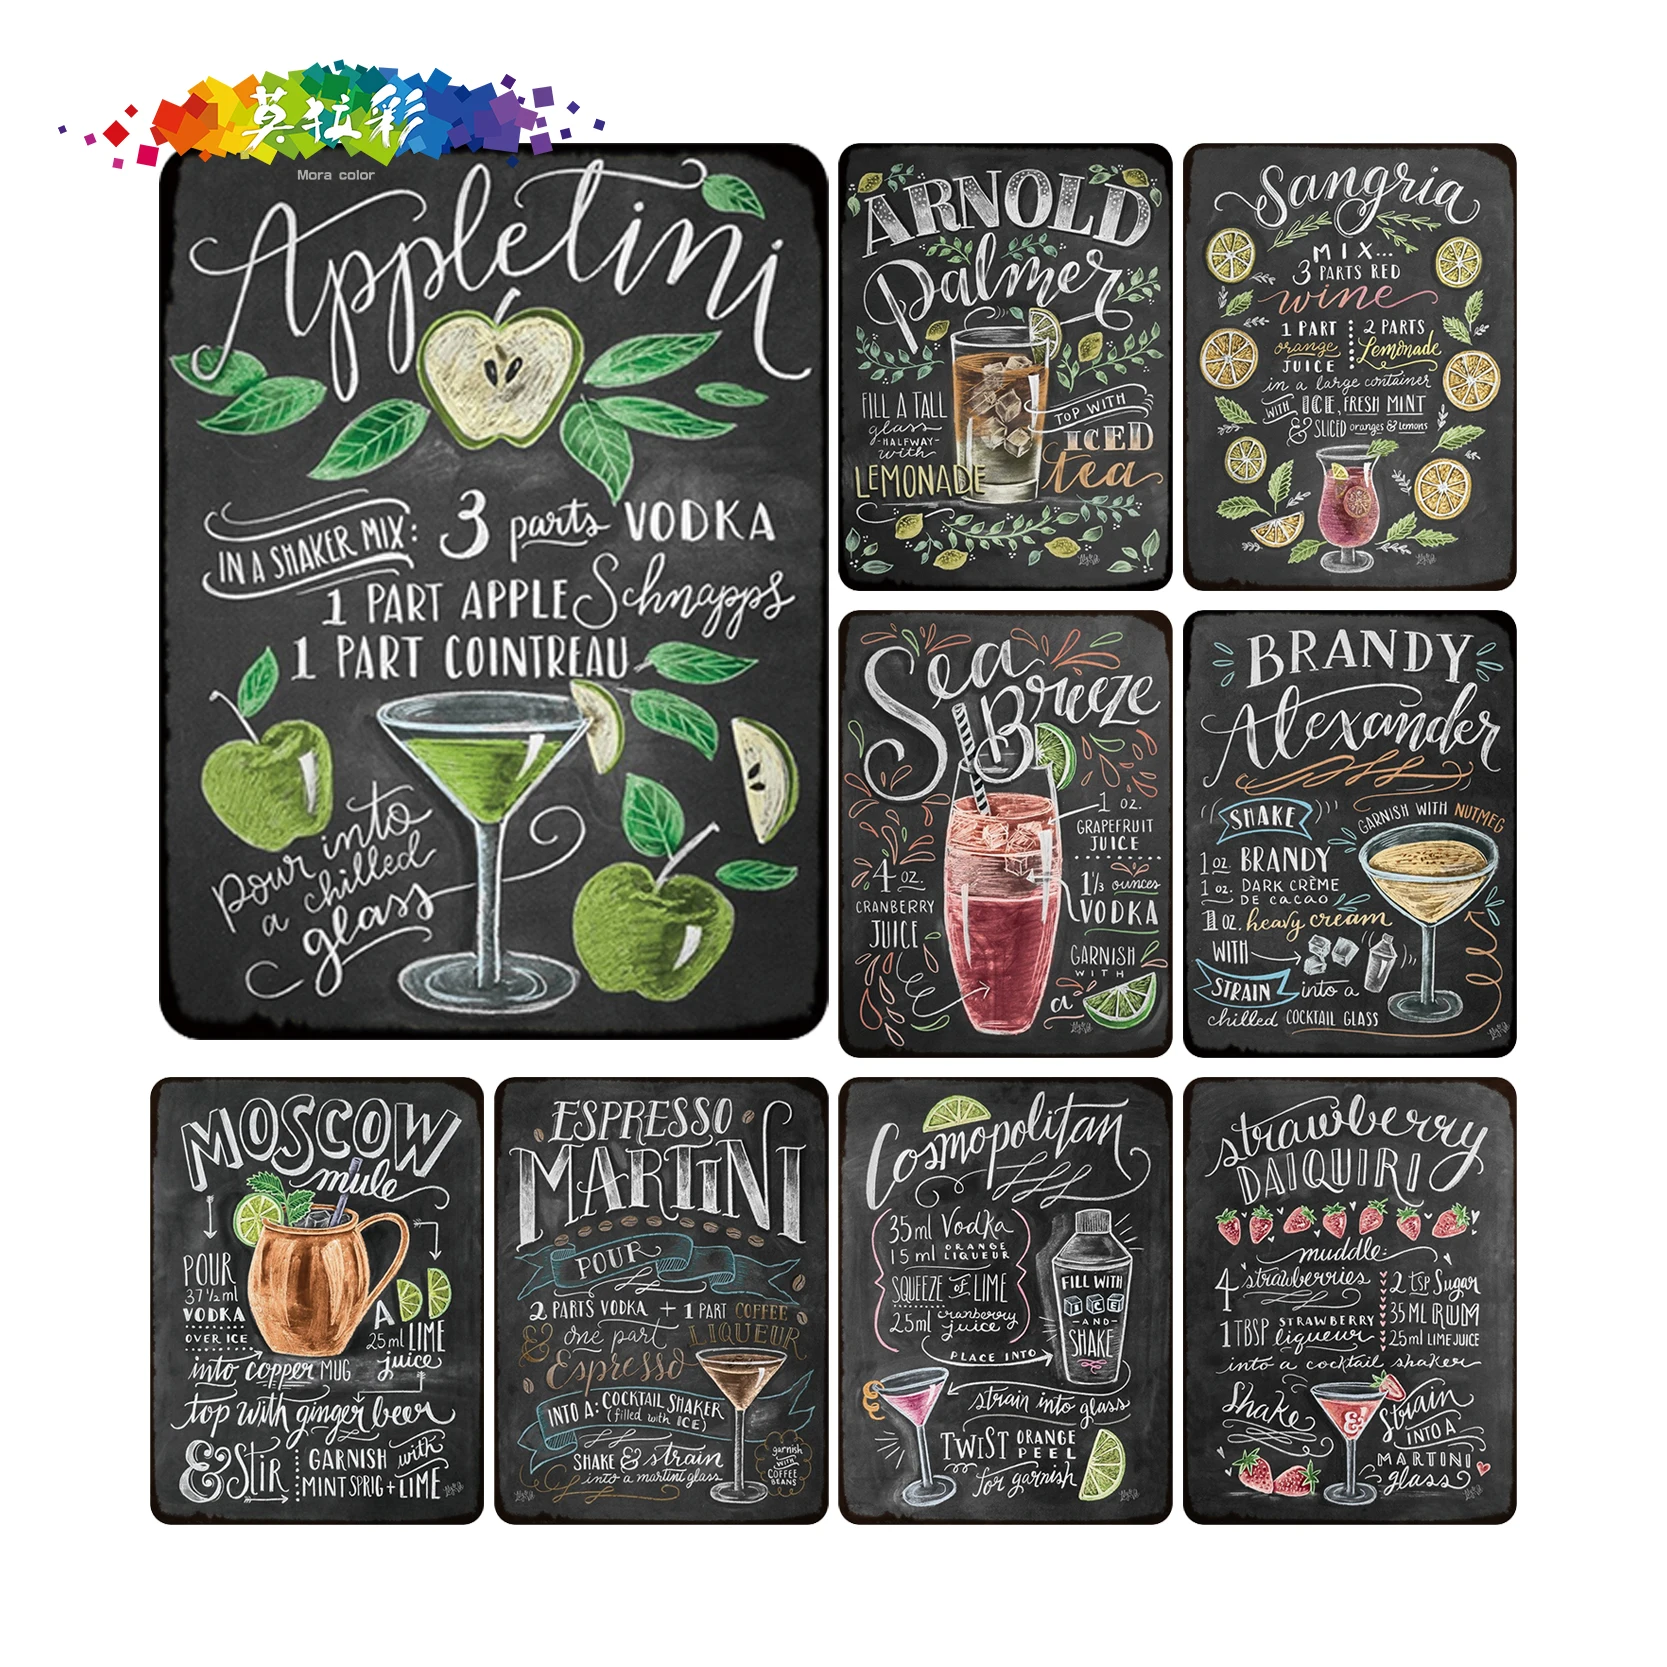 莫拉彩
Mora color
Appletini
IN A SHAKER MIX: 3 parts VODKA
1 PART APPLE Schnapps
1 PART COINTREAU
pour into
a chilled
glass
ARNOLD
Palmer
FILL A TALL
glass
-HALFWAY-
with
LEMONADE
TOP WITH
ICED
tea
Sangria
MIX...
3 PARTS RED
wine
1 PART
orange
JUICE
2 PARTS
Lemonade
in a large container
WITH ICE, FRESH MINT
& SLICED oranges & lemons
Sea
Breeze
1 OZ.
GRAPEFRUIT
JUICE
4 OZ.
CRANBERRY
JUICE
1 1/3 ounces
VODKA
GARNISH
WITH
a
BRANDY
Alexander
SHAKE
GARNISH WITH NUTMEG
1 OZ. BRANDY
1 OZ. DARK CRÈME
DE CACAO
1 OZ. heavy cream
WITH
STRAIN into a
chilled COCKTAIL GLASS
MOSCOW
mule
POUR
37 1/2 ml
VODKA
OVER ICE
into copper MUG
ADD
25 ml LIME
juice
top with ginger beer
& STIR
GARNISH with
MINT SPRIG + LIME
ESPRESSO
MARTINI
POUR
2 PARTS VODKA + 1 PART COFFEE
LIQUEUR
& one part
Espresso
INTO A: COCKTAIL SHAKER
(filled with ICE)
SHAKE & strain
into a martini glass
garnish
WITH
COFFEE
BEANS
Cosmopolitan
35ml Vodka
15 ml ORANGE
LIQUEUR
SQUEEZE OF LIME
25ml cranberry
juice
PLACE INTO
FILL WITH
ICE
-AND-
SHAKE
strain into glass
TWIST ORANGE
PEEL
for garnish
strawberry
DAIQUIRI
muddle:
4 strawberries
1 TBSP STRAWBERRY
liqueur
2 tsp Sugar
35 ML RUM
25ml LIME JUICE
into a cocktail shaker
Shake
&
Strain
INTO A
MARTINI
glass